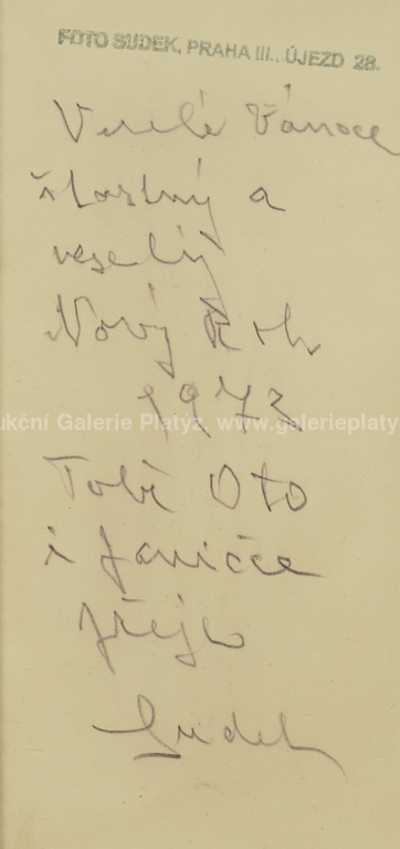 FOTO SUDEK, PRAHA III., ÚJEZD 28.
Veselé Vánoce
šťastný a
veselý
Nový Rok
1973
ukční Galerie Platýz, www.galerieplaty
Tobě Oto
i Janičce
přeje
Sudek